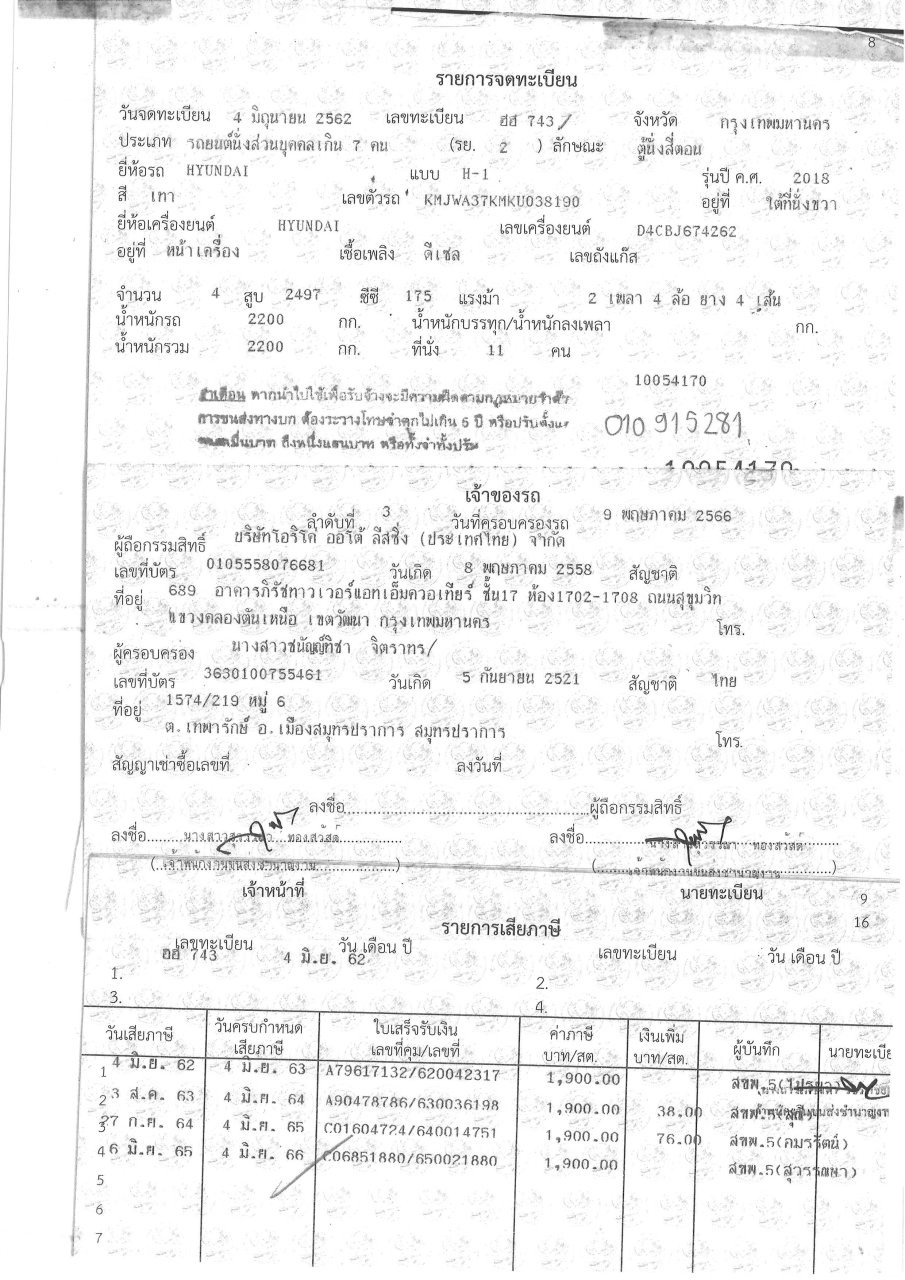 8
รายการจดทะเบียน
วันจดทะเบียน 4 มิถุนายน 2562 เลขทะเบียน ฮฮ 743/ จังหวัด กรุงเทพมหานคร
ประเภท รถยนต์นั่งส่วนบุคคลเกิน 7 คน (รย. 2 ) ลักษณะ ตู้นั่งสี่ตอน
ยี่ห้อรถ HYUNDAI แบบ H-1 รุ่นปี ค.ศ. 2018
สี เทา เลขตัวรถ KMJWA37KMKU038190 อยู่ที่ ใต้ที่นั่งขวา
ยี่ห้อเครื่องยนต์ HYUNDAI เลขเครื่องยนต์ D4CBJ674262
อยู่ที่ หน้าเครื่อง เชื้อเพลิง ดีเซล เลขถังแก๊ส
จำนวน 4 สูบ 2497 ซีซี 175 แรงม้า 2 เพลา 4 ล้อ ยาง 4 เส้น
น้ำหนักรถ 2200 กก. น้ำหนักบรรทุก/น้ำหนักลงเพลา กก.
น้ำหนักรวม 2200 กก. ที่นั่ง 11 คน
10054170
คำเตือน หากนำไปใช้เพื่อรับจ้างจะมีความผิดตามกฎหมายว่าด้ว
การขนส่งทางบก ต้องระวางโทษจำคุกไม่เกิน 5 ปี หรือปรับตั้งแ
หมื่นบาท ถึงหนึ่งแสนบาท หรือทั้งจำทั้งปรับ
010 915281
10054170
เจ้าของรถ
ลำดับที่ 3 วันที่ครอบครองรถ 9 พฤษภาคม 2566
ผู้ถือกรรมสิทธิ์ บริษัทโอริโค่ ออโต้ ลีสซิ่ง (ประเทศไทย) จำกัด
เลขที่บัตร 0105558076681 วันเกิด 8 พฤษภาคม 2558 สัญชาติ
ที่อยู่ 689 อาคารภิรัชทาวเวอร์แอทเอ็มควอเทียร์ ชั้น17 ห้อง1702-1708 ถนนสุขุมวิท
แขวงคลองตันเหนือ เขตวัฒนา กรุงเทพมหานคร โทร.
ผู้ครอบครอง นางสาวชนัญญ์ทิชา จิตราทร/
เลขที่บัตร 3630100755461 วันเกิด 5 กันยายน 2521 สัญชาติ ไทย
ที่อยู่ 1574/219 หมู่ 6
ต.เทพารักษ์ อ.เมืองสมุทรปราการ สมุทรปราการ โทร.
สัญญาเช่าซื้อเลขที่ ลงวันที่
ลงชื่อ ผู้ถือกรรมสิทธิ์
ลงชื่อ ทองสวัสดิ์ ลงชื่อ ทองสวัสดิ์
(เจ้าพนักงานขนส่งชำนาญงาน) (เจ้าพนักงานขนส่งชำนาญงาน)
เจ้าหน้าที่ นายทะเบียน
9
16
รายการเสียภาษี
เลขทะเบียน วัน เดือน ปี เลขทะเบียน วัน เดือน ปี
1. ฮฮ 743 4 มิ.ย. 62 2.
3. 4.
วันเสียภาษี วันครบกำหนดเสียภาษี ใบเสร็จรับเงิน เลขที่คุม/เลขที่ ค่าภาษี บาท/สต. เงินเพิ่ม บาท/สต. ผู้บันทึก นายทะเบีย
1 4 มิ.ย. 62 4 มิ.ย. 63 A79617132/620042317 1,900.00 สขพ.5
2 3 ส.ค. 63 4 มิ.ย. 64 A90478786/630036198 1,900.00 38.00 สขพ.5
3 27 ก.ย. 64 4 มิ.ย. 65 C01604724/640014751 1,900.00 76.00 สขพ.5(คมรรัตน์)
4 6 มิ.ย. 65 4 มิ.ย. 66 C06851880/650021880 1,900.00 สขพ.5(สุวรรณษา)
5
6
7